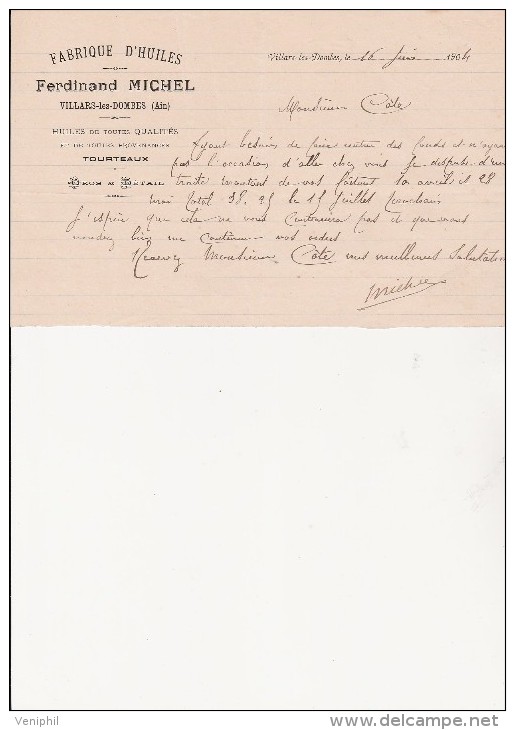 FABRIQUE D'HUILES
Ferdinand MICHEL
VILLARS-les-DOMBES (Ain)
HUILES DE TOUTES QUALITÉS
ET DE TOUTES PROVENANCES
TOURTEAUX
GROS & DÉTAIL
Villars-les-Dombes, le 16 juin 1904
Monsieur Côte
Ayant besoins de faire rentrer des fonds et n'ayant
pas l'occasion d'aller chez vous je dispose d'une
traite montant de vos facture 10 avril et 28
mai total 38.25 le 15 juillet prochain
J'espère que cela ne vous contrariera pas et que vous
voudrez bien me continuer vos ordres
Recevez Monsieur Côte mes meilleures Salutations
Michel
Veniphil
www.delcampe.net